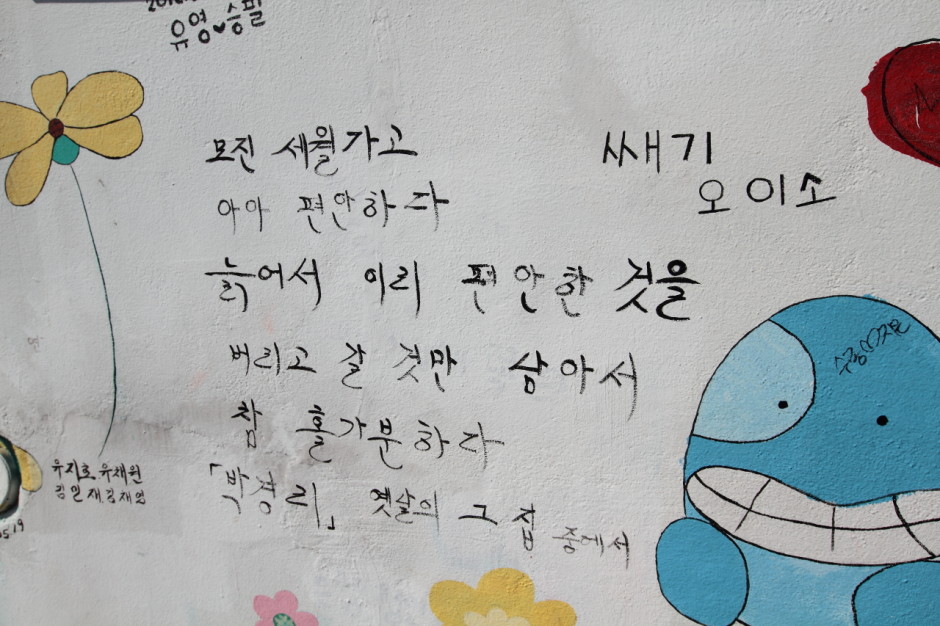 유영♥승필
모진 세월가고
아아 편안하다
늙어서 이리 편안한 것을
버리고 갈 것만 남아서
참 홀가분하다
「박경리」 옛날의 그 집 중에서
쌔기
오이소
유지호 유채원